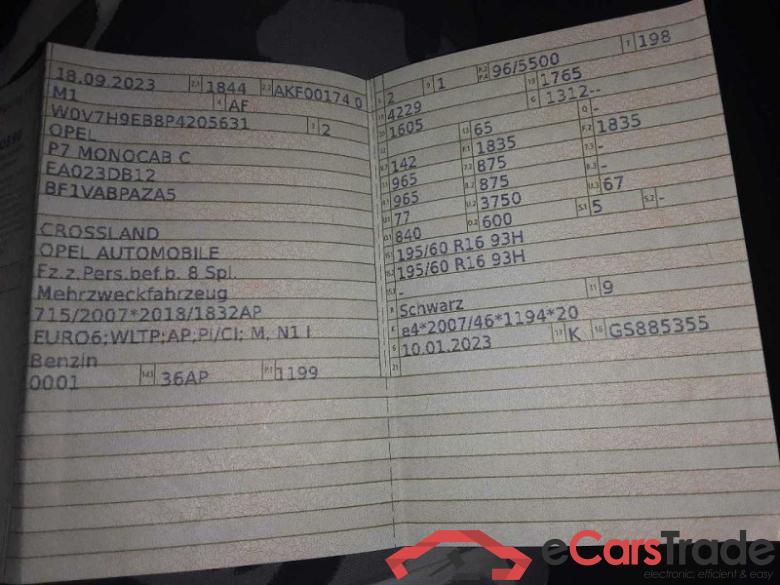 18.09.2023 2.1 1844 2.2 AKF00174 0
M1 4 AF
W0V7H9EB8P4205631 3 2
OPEL
P7 MONOCAB C
EA023DB12
BF1VABPAZA5
CROSSLAND
OPEL AUTOMOBILE
Fz.z.Pers.bef.b. 8 Spl.
Mehrzweckfahrzeug
715/2007*2018/1832AP
EURO6;WLTP;AP;PI/CI; M, N1 I
Benzin
0001 14.1 36AP P.1 1199
2 9 1 P.2 P.4 96/5500 T 198
4229 19 1765
1605 G 1312--
13 65 Q -
142 F.1 1835 F.2 1835
965 7.2 875 7.3 -
965 8.2 875 8.3 -
77 U.2 3750 U.3 67
840 O.2 600 S.1 5 S.2 -
195/60 R16 93H
195/60 R16 93H
-
R Schwarz 11 9
K e4*2007/46*1194*20
6 10.01.2023 17 K 16 GS885355
21
eCarsTrade
electronic, efficient & easy